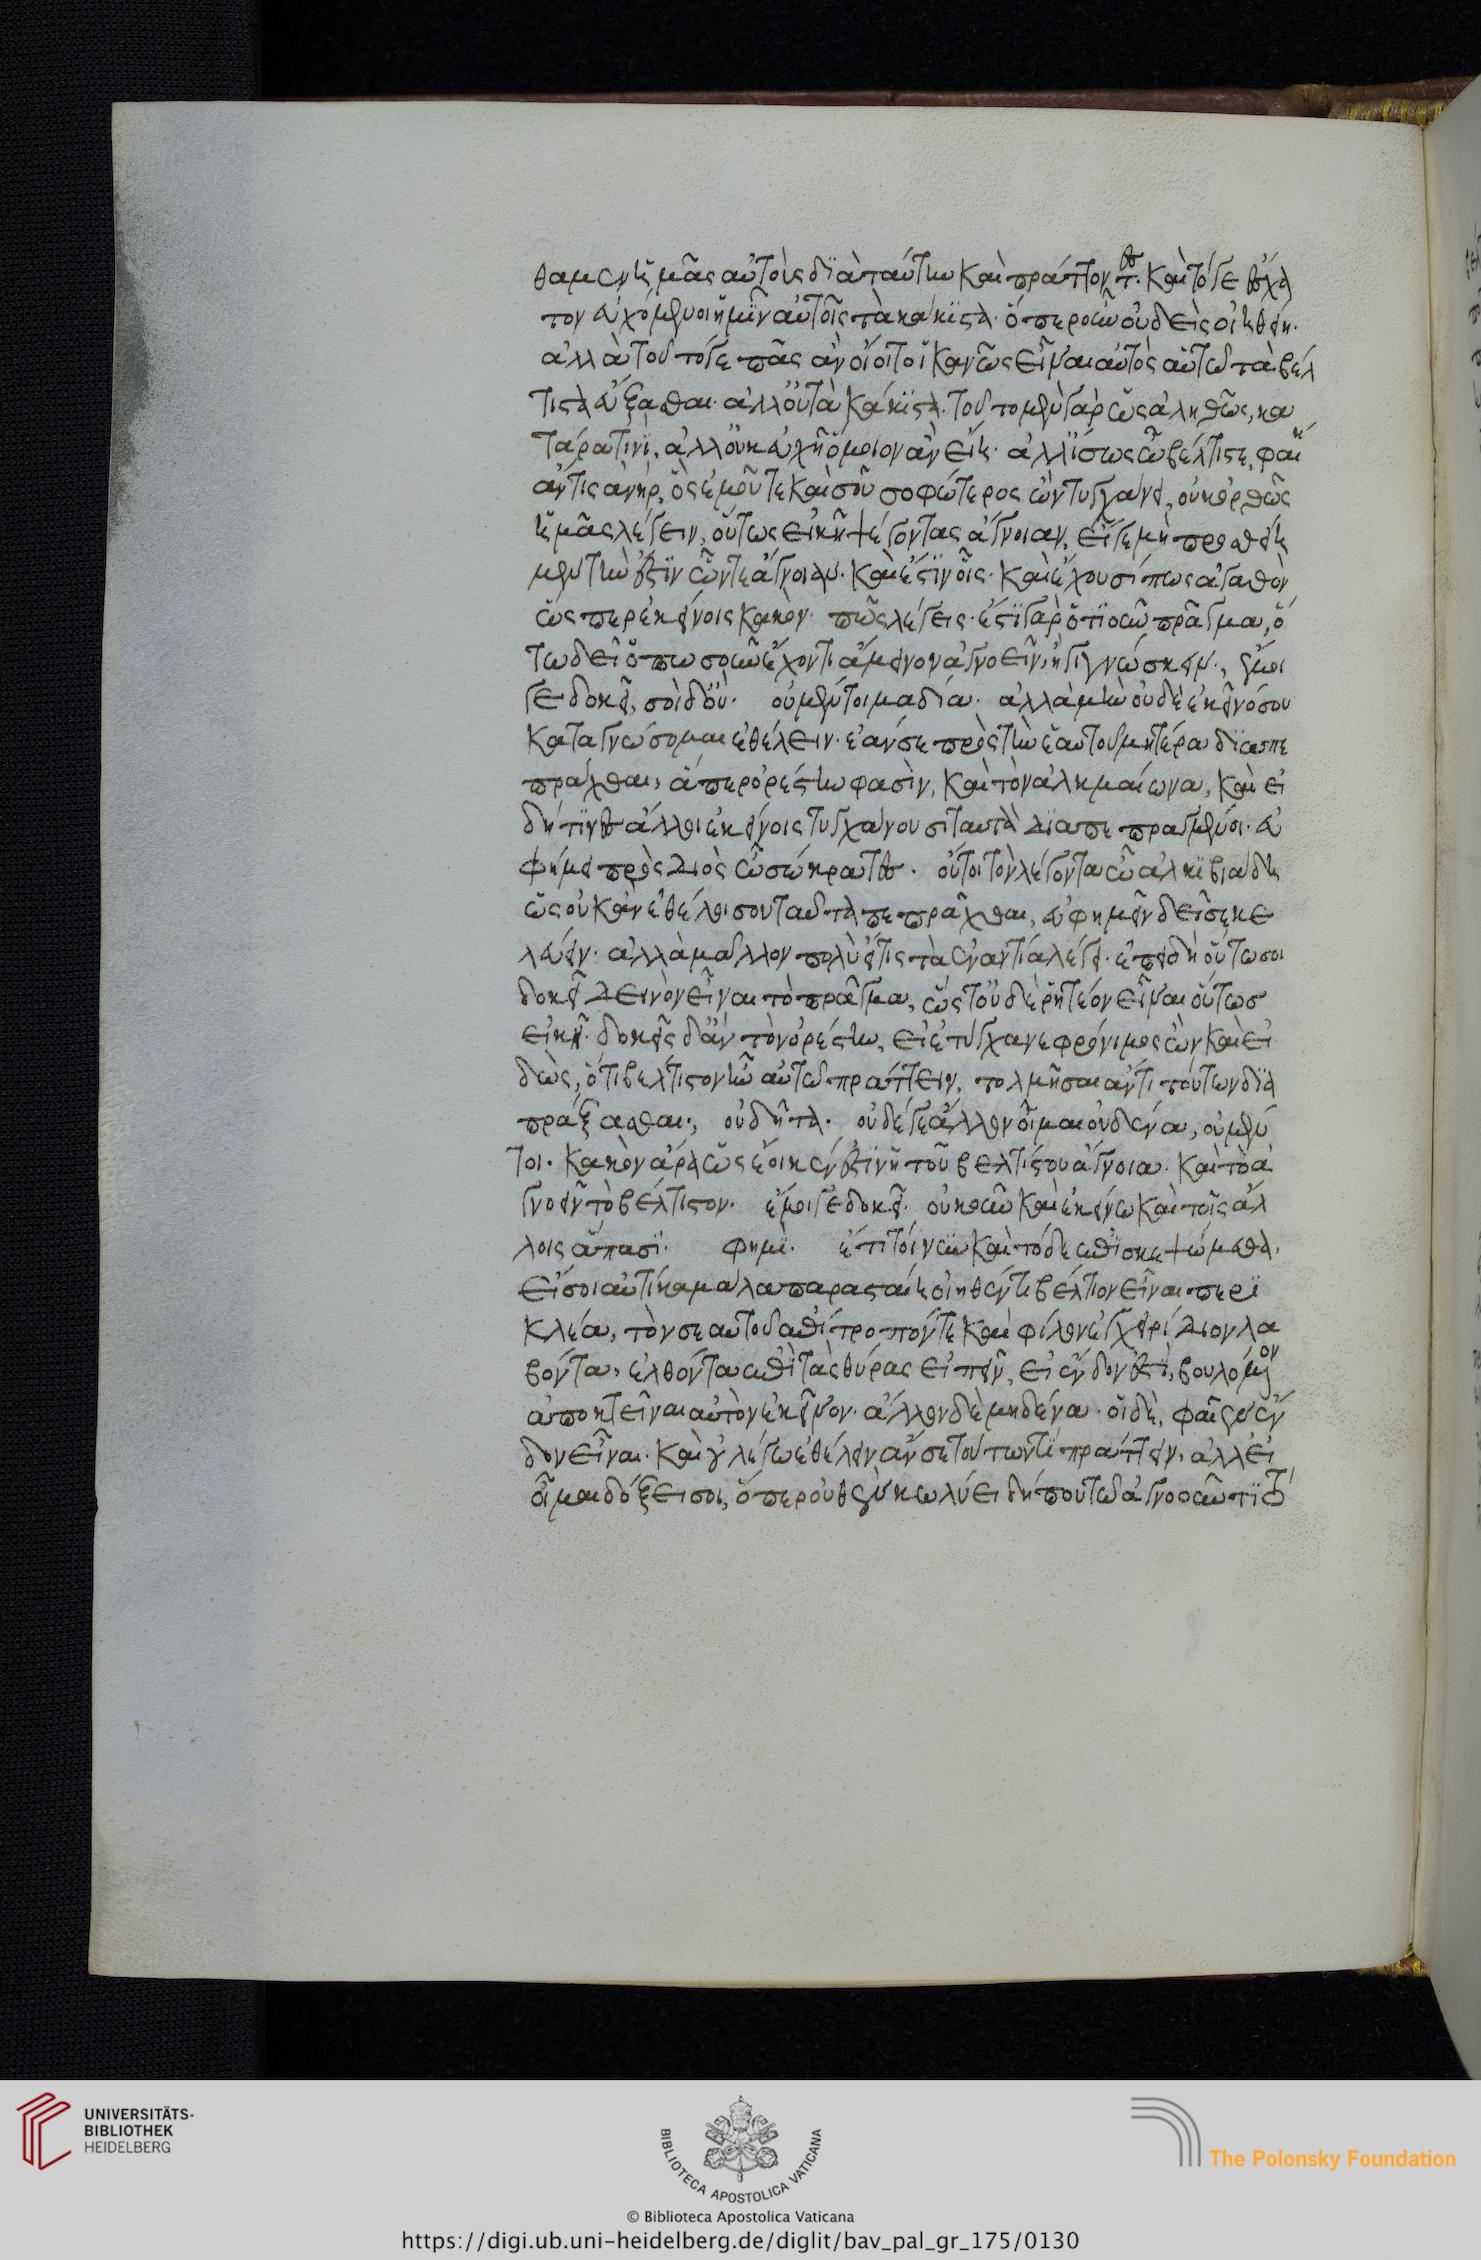 θαμεν ἡμᾶς αὐτοὺς διὰ ταύτην καὶ πράττοντες. καὶ τό γε ἔσχα
τον εὐχόμενοι ἡμῖν αὐτοῖς τὰ κάκιστα. ὅπερ οὖν οὐδεὶς οἰηθείη.
ἀλλὰ τοῦτό γε πᾶς ἂν οἴοιτο ἱκανῶς εἶναι αὐτὸς αὑτῶ τὰ βέλ
τιστα εὔξασθαι. ἀλλ' οὐ τὰ κάκιστα. τοῦτο μὲν γὰρ ὡς ἀληθῶς, κα
τάρα τινὶ, ἀλλ' οὐκ εὐχῆ ὅμοιον ἂν εἴη. ἀλλ' ἴσως ὦ βέλτιστε, φαίη
ἄν τις ἀνὴρ, ὃς ἐμοῦ τε καὶ σοῦ σοφώτερος ὢν τυγχάνει, οὐκ ὀρθῶς
ἡμᾶς λέγειν, οὕτως εἰκῆ ψέγοντας ἄγνοιαν, εἴ γε μὴ προσθείη
μεν τὴν ἔστιν ὧν τε ἄγνοιαν. καὶ ἔστιν οἷς. καὶ ἔχουσί πως ἀγαθὸν
ὥσπερ ἐκείνοις κακόν. πῶς λέγεις. ἔστι γὰρ ὁτιοῦν πρᾶγμα, ὅ
τω δεῖ ὅπωσοῦν ἔχοντι ἄμεινον ἀγνοεῖν, ἢ γιγνώσκειν., ἔμοι
γε δοκεῖ, σοὶ δ' οὔ. οὐ μέντοι μὰ δία. ἀλλὰ μὴν οὐδὲ ἐκεῖνό σου
καταγνώσομαι ἐθέλειν. ἐάν σε πρὸς τὴν ἑαυτοῦ μητέρα διαπε
πρᾶχθαι, ἅπερ ὀρέστην φασὶν, καὶ τὸν ἀλκμαίωνα, καὶ εἰ
δή τινες ἄλλοι ἐκείνοις τυγχάνουσι ταυτὰ διαπεπραγμένοι. εὐ
φήμει πρὸς διὸς ὦ σώκρατες. οὔτοι τὸν λέγοντα ὦ ἀλκιβιάδη
ὡς οὐκ ἂν ἐθέλοι σοι ταῦτα πεπρᾶχθαι, εὐφημεῖν δεῖ σε κε
λεύειν. ἀλλὰ μᾶλλον πολὺ εἴ τις τὰ ἐναντία λέγει. ἐπειδὴ οὕτω σοι
δοκεῖ δεινὸν εἶναι τὸ πρᾶγμα, ὥστ' οὐδὲ ῥητέον εἶναι οὕτωσ
εἰκῆ. δοκεῖς δ' ἂν τὸν ὀρέστην, εἰ ἐτύγχανε φρόνιμος ὢν καὶ εἰ
δὼς, ὅτι βέλτιστον ἦν αὐτῶ πράττειν, τολμῆσαι ἄν τι τούτων δια
πράξασθαι., οὐ δῆτα. οὐδέ γε ἄλλον οἶμαι οὐδένα, οὐ μέν
τοι. κακὸν ἄρα ὡς ἔοικεν ἐστὶν ἡ τοῦ βελτίστου ἄγνοια. καὶ τὸ ἀ
γνοεῖν τὸ βέλτιστον. ἔμοιγε δοκεῖ. οὐκοῦν καὶ ἐκείνω καὶ τοῖς ἄλ
λοις ἅπασι. φημί. ἔτι τοίνυν καὶ τόδε ἐπισκεψώμεθα.
εἴ σοι αὐτίκα μάλα παρασταίη οἰηθέντι βέλτιον εἶναι περι
κλέα, τὸν σεαυτοῦ ἐπίτροπόν τε καὶ φίλον ἐγχειρίδιον λα
βόντα, ἐλθόντα ἐπὶ τὰς θύρας εἰπεῖν, εἰ ἔνδον ἐστὶ, βουλόμενον
ἀποκτεῖναι αὐτὸν ἐκεῖνον. ἄλλον δὲ μηδένα. οἱ δὲ, φαῖεν ἔν
δον εἶναι. καὶ οὐ λέγω ἐθέλειν ἄν σε τούτων τι πράττειν, ἀλλ' εἰ
οἶμαι δόξει σοι, ὅπερ οὐθὲν κωλύει δήπου τῶ ἀγνοοῦντι τό
UNIVERSITÄTS-
BIBLIOTHEK
HEIDELBERG
BIBLIOTECA APOSTOLICA VATICANA
The Polonsky Foundation
© Biblioteca Apostolica Vaticana
https://digi.ub.uni-heidelberg.de/diglit/bav_pal_gr_175/0130